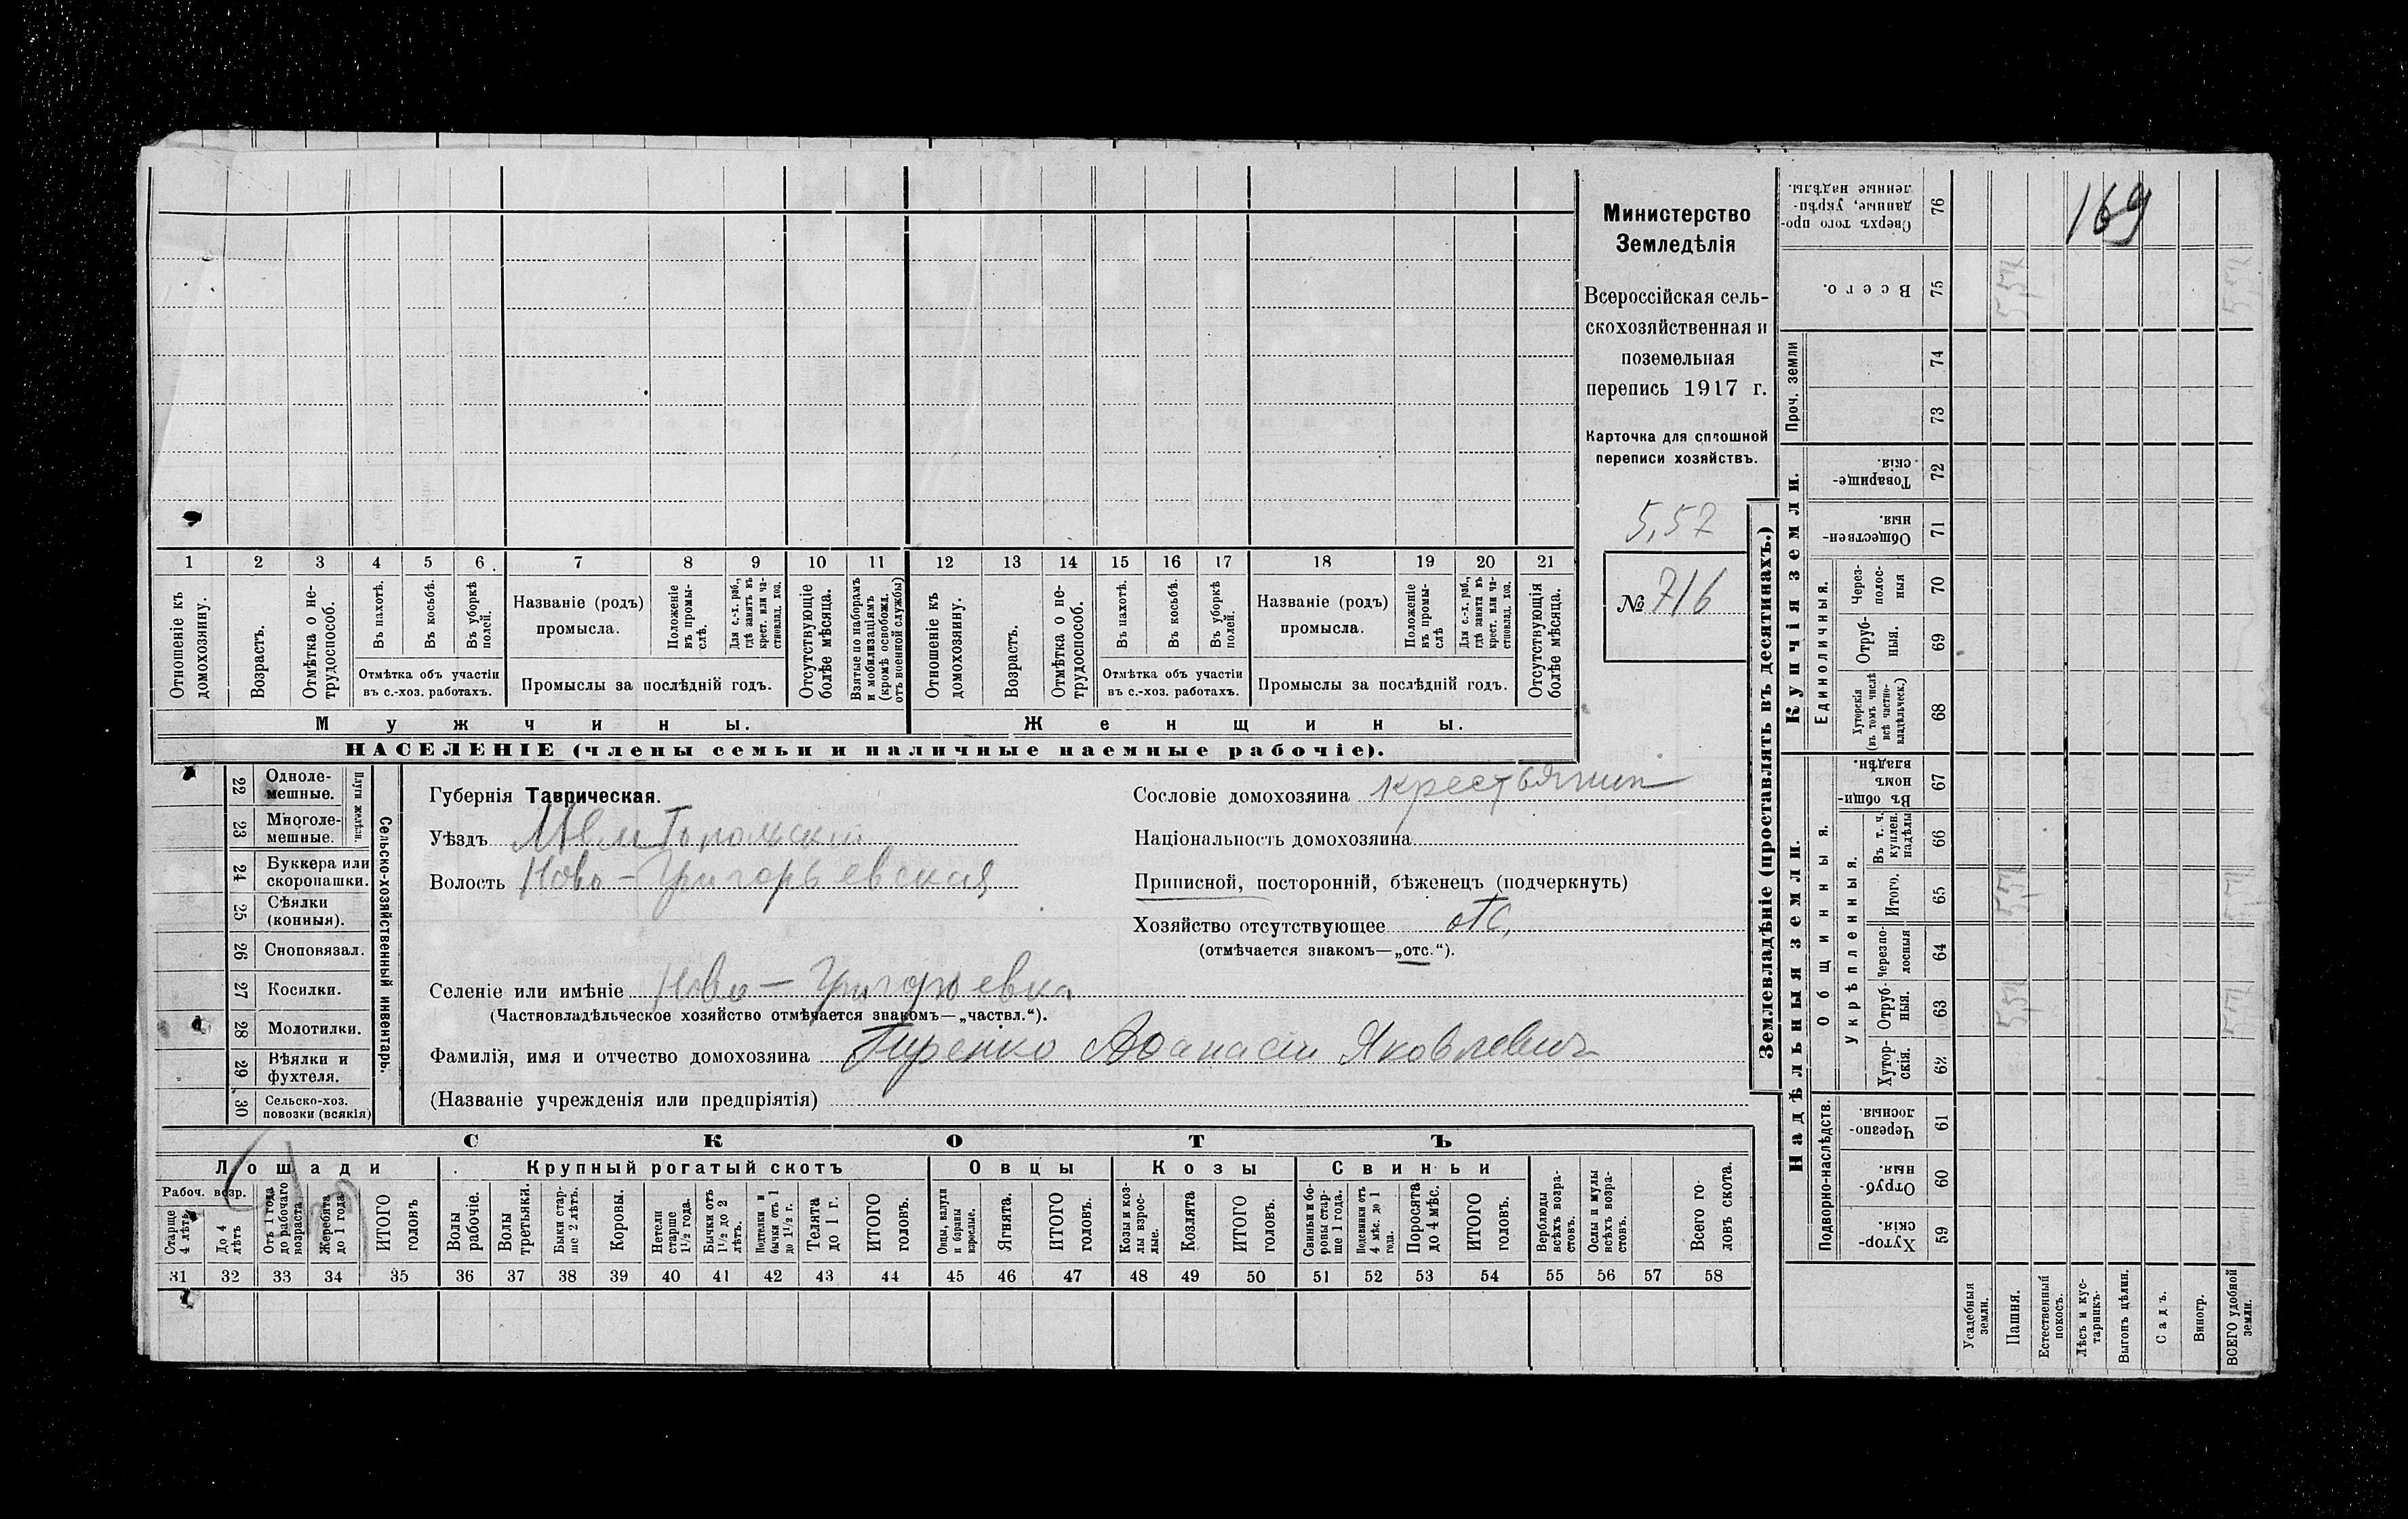 Министерство
Земледѣлія
Всероссійская сель-
скохозяйственная и
поземельная
перепись 1917 г.
Карточка для сплошной
переписи хозяйствъ.
5,57
№ 716
1 2 3 4 5 6 7 8 9 10 11 12 13 14 15 16 17 18 19 20 21
Отношеніе къ домохозяину.
Возрастъ.
Отмѣтка о не-трудоспособ.
Въ пахотѣ.
Въ косьбѣ.
Въ уборкѣ полей.
Отмѣтка объ участіи
въ с.-хоз. работахъ.
Названіе (родъ)
промысла.
Положеніе въ промы-слѣ.
Для с.-х. раб., гдѣ занятъ въ крест. или ча-стновлад. хоз.
Промыслы за послѣдній годъ.
Отсутствующіе болѣе мѣсяца.
Взятые по наборамъ и мобилизаціямъ (кромѣ освобожд. отъ военной службы)
Отношеніе къ домохозяину.
Возрастъ.
Отмѣтка о не-трудоспособ.
Въ пахотѣ.
Въ косьбѣ.
Въ уборкѣ полей.
Отмѣтка объ участіи
въ с.-хоз. работахъ.
Названіе (родъ)
промысла.
Положеніе въ промы-слѣ
Для с.-х. раб., гдѣ занята въ крест. или ча-стновлад. хоз.
Промыслы за послѣдній годъ.
Отсутствующія болѣе мѣсяца.
Мужчины.
Женщины.
НАСЕЛЕНІЕ (члены семьи и наличные наемные рабочіе).
22 Одноле-мешные.
23 Многоле-мешные.
Плуги желѣзн.
24 Буккера или скоропашки.
25 Сѣялки (конныя).
26 Сноповязал.
27 Косилки.
28 Молотилки.
29 Вѣялки и фухтеля.
30 Сельско-хоз. повозки (всякія)
Сельско-хозяйственный инвентарь.
Губернія Таврическая.
Уѣздъ Мелитопольскій
Волость Ново-Григорьевская
Сословіе домохозяина крестьянин
Національность домохозяина
Приписной, посторонній, бѣженецъ (подчеркнуть)
Хозяйство отсутствующее отс.
(отмѣчается знакомъ—„отс.“).
Селеніе или имѣніе Ново-Григорьевка
(Частновладѣльческое хозяйство отмѣчается знакомъ—„частвл.“).
Фамилія, имя и отчество домохозяина Гиренко Афанасій Яковлевич
(Названіе учрежденія или предпріятія)
СКОТЪ
Лошади
Рабоч. возр.
Старше 4 лѣтъ
До 4 лѣтъ
Отъ 1 года до рабочаго возраста
Жеребята до 1 года
ИТОГО головъ
Крупный рогатый скотъ
Волы рабочіе.
Волы третьяки.
Быки стар-ше 2 лѣтъ.
Коровы.
Нетели старше 1½ года.
Бычки отъ 1½ до 2 лѣтъ.
Подтелки и бычки отъ 1 до 1½ г.
Телята до 1 г.
ИТОГО головъ.
Овцы
Овцы, валухи и бараны взрослые.
Ягнята.
ИТОГО головъ.
Козы
Козы и коз-лы взрос-лые.
Козлята
ИТОГО головъ.
Свиньи
Свиньи и бо-ровы стар-ше 1 года.
Подсвинки отъ 4 мѣс. до 1 года.
Поросята до 4 мѣс.
ИТОГО головъ.
Верблюды всѣхъ возра-стовъ.
Ослы и мулы всѣхъ возра-стовъ.
Всего го-ловъ скота.
31 32 33 34 35 36 37 38 39 40 41 42 43 44 45 46 47 48 49 50 51 52 53 54 55 56 57 58
Землевладѣніе (проставлять въ десятинахъ.)
169
Сверхъ того про-данные, укрѣп-ленные надѣлы. 76
Всего. 75
Проч. земли
74
73
Купчія земли.
Товарище-скія. 72
Обществен-ныя 71
Единоличныя.
Через-полос-ныя 70
Отруб-ныя. 69
Хуторскія (въ томъ числѣ всѣ частно-владѣльческ.) 68
Надѣльныя земли.
Общинныя.
Въ общи-номъ владѣн. 67
Укрѣпленныя.
Въ т. ч. куплен. надѣлы 66
Итого. 65
Черезпо-лосныя 64
Отруб-ныя. 63
Хутор-скія. 62
Подворно-наслѣдств.
Черезпо-лосныя. 61
Отруб-ныя. 60
Хутор-скія. 59
Усадебныя земли.
Пашня.
Естественный покосъ.
Лѣсъ и кус-тарникъ.
Выгонъ цѣлин.
Садъ.
Виногр.
ВСЕГО удобной земли.